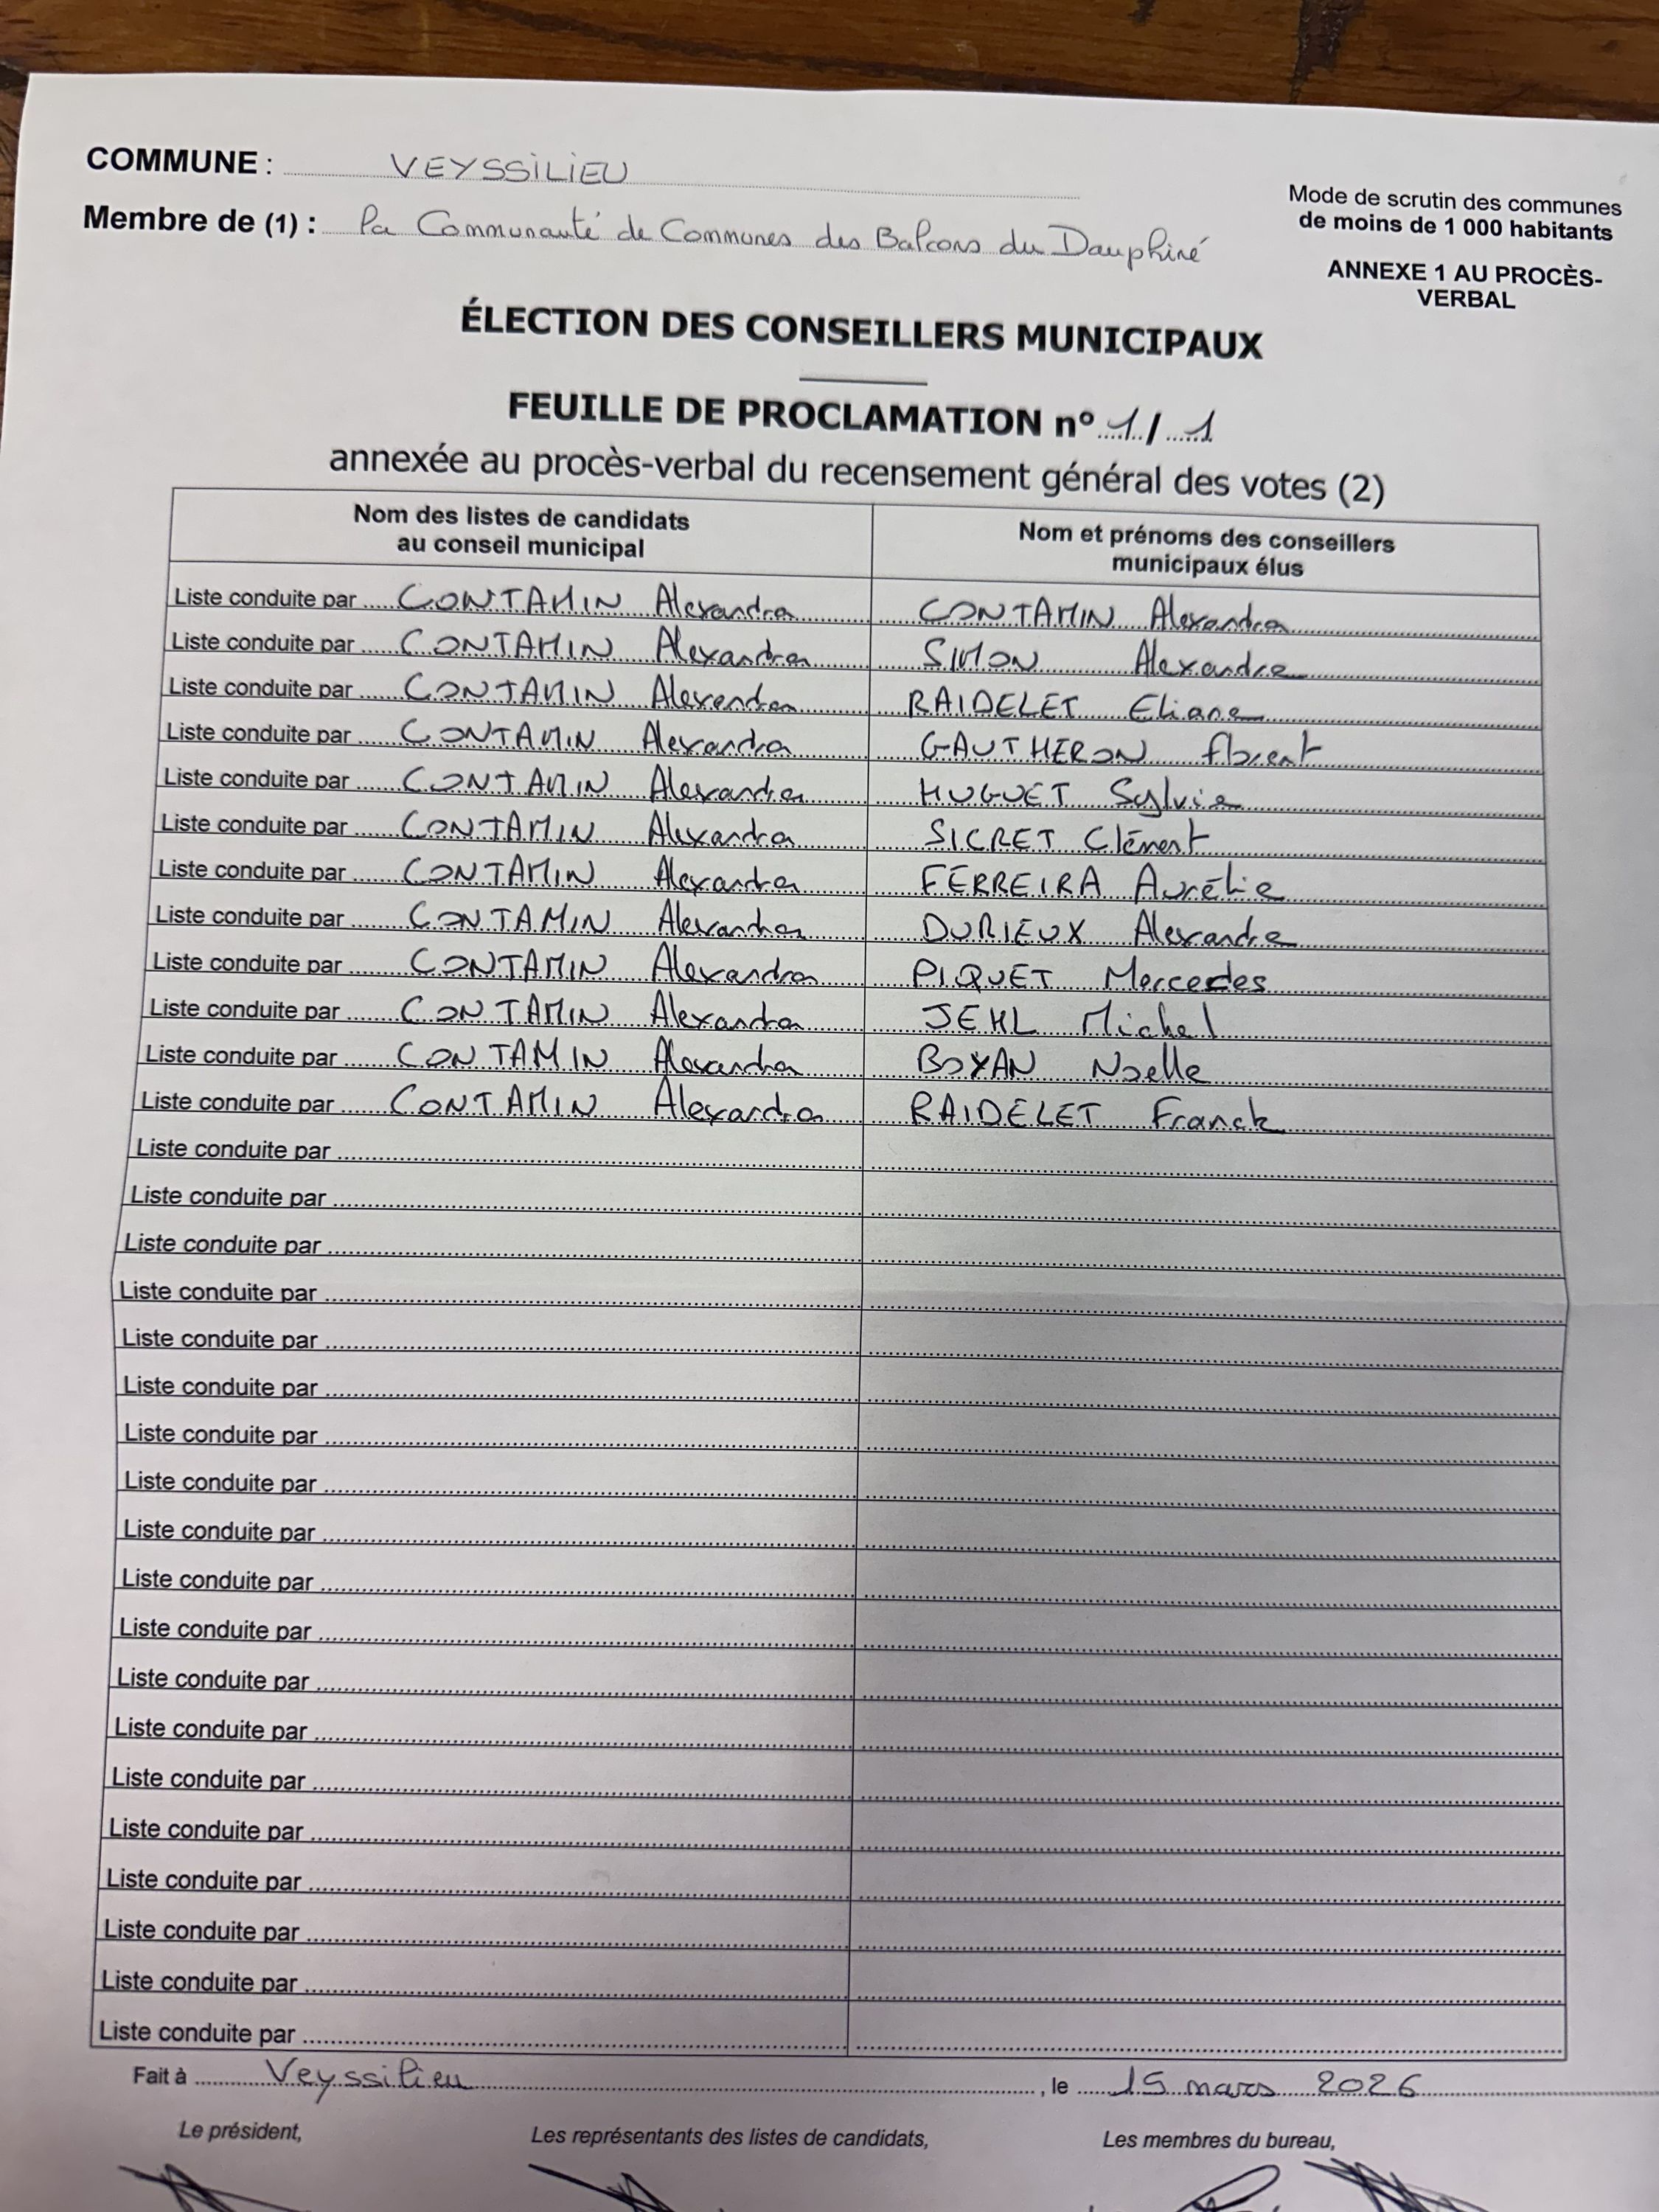 COMMUNE : VEYSSILIEU
Membre de (1) : la Communauté de Communes des Balcons du Dauphiné
Mode de scrutin des communes
de moins de 1 000 habitants
ANNEXE 1 AU PROCÈS-
VERBAL
ÉLECTION DES CONSEILLERS MUNICIPAUX
FEUILLE DE PROCLAMATION n° 1 / 1
annexée au procès-verbal du recensement général des votes (2)
Nom des listes de candidats
au conseil municipal
Nom et prénoms des conseillers
municipaux élus
Liste conduite par CONTAMIN Alexandra CONTAMIN Alexandra
Liste conduite par CONTAMIN Alexandra SIMON Alexandre
Liste conduite par CONTAMIN Alexandra RAIDELET Eliane
Liste conduite par CONTAMIN Alexandra GAUTHERON florent
Liste conduite par CONTAMIN Alexandra HUGUET Sylvie
Liste conduite par CONTAMIN Alexandra SICRET Clément
Liste conduite par CONTAMIN Alexandra FERREIRA Aurélie
Liste conduite par CONTAMIN Alexandra DURIEUX Alexandre
Liste conduite par CONTAMIN Alexandra PIQUET Mercedes
Liste conduite par CONTAMIN Alexandra JEHL Michel
Liste conduite par CONTAMIN Alexandra BOYAN Noelle
Liste conduite par CONTAMIN Alexandra RAIDELET Franck
Liste conduite par
Liste conduite par
Liste conduite par
Liste conduite par
Liste conduite par
Liste conduite par
Liste conduite par
Liste conduite par
Liste conduite par
Liste conduite par
Liste conduite par
Liste conduite par
Liste conduite par
Liste conduite par
Liste conduite par
Liste conduite par
Liste conduite par
Liste conduite par
Liste conduite par
Fait à Veyssilieu , le 15 mars 2026
Le président, Les représentants des listes de candidats, Les membres du bureau,